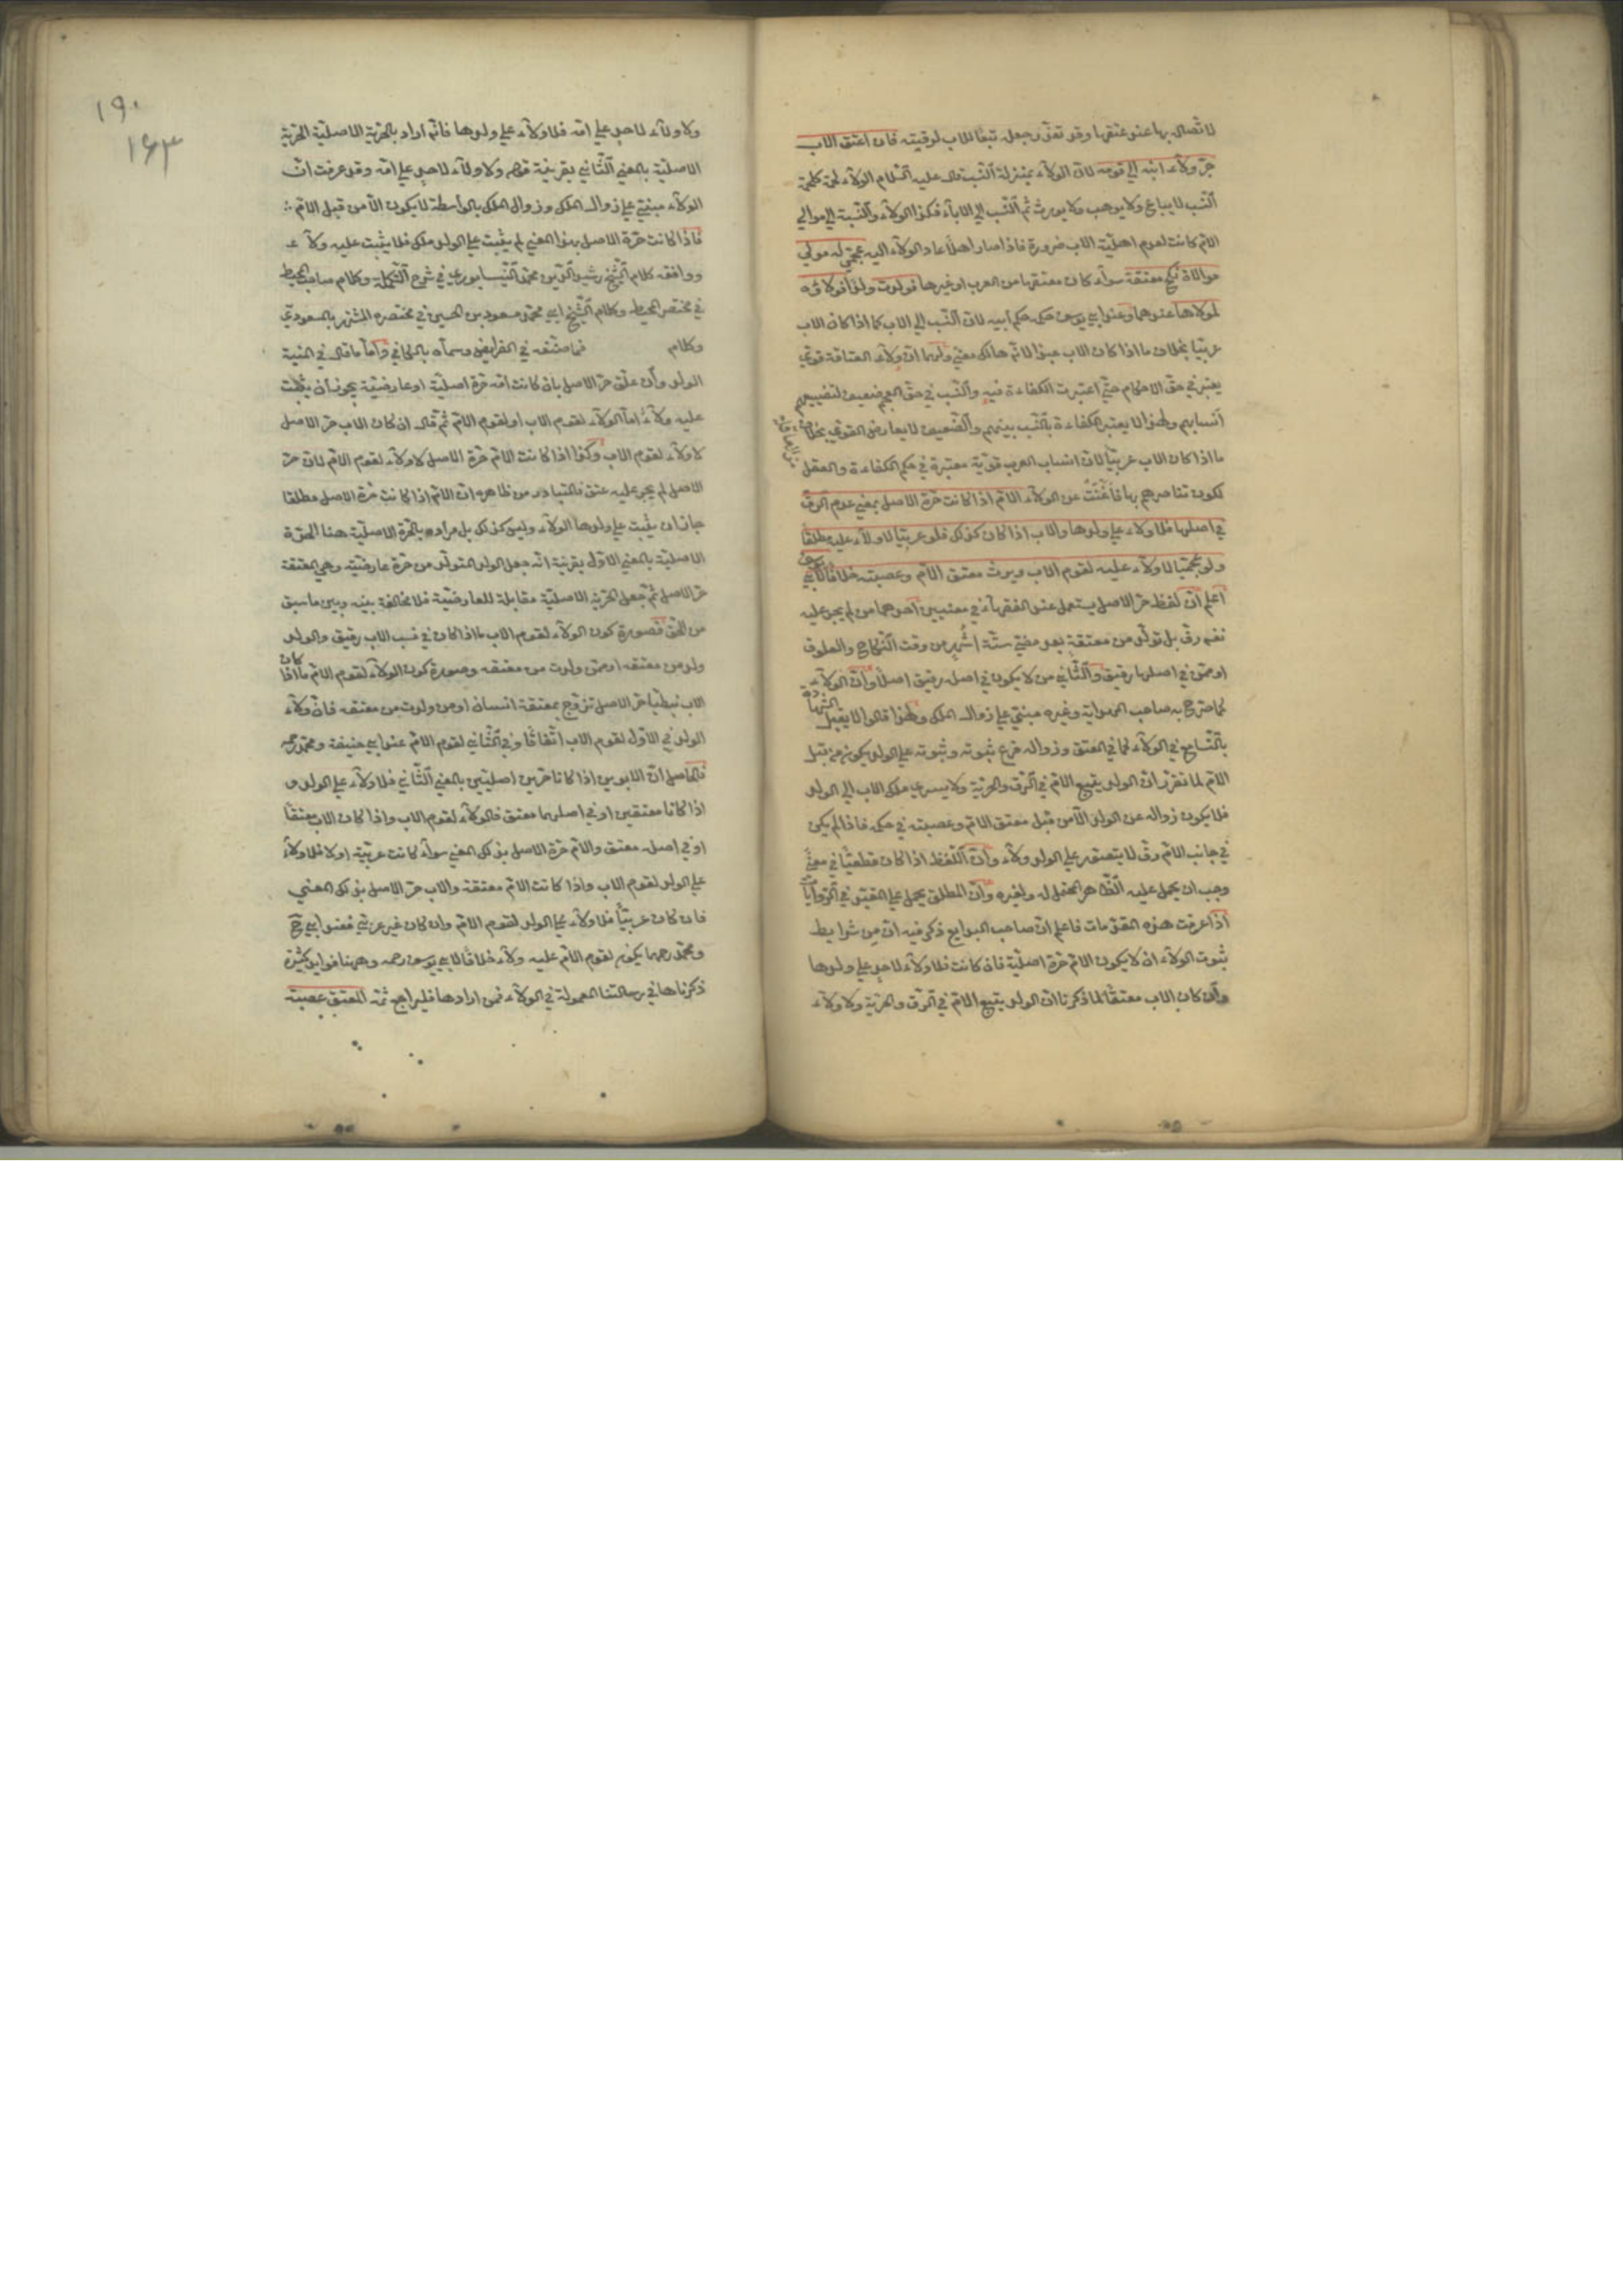 لاتصاله بها عند عتقها وقد تعذر جعله تبعا للاب لرقيته فان اعتق الاب
جر ولاء ابنه الى قومه لان الولاء بمنزلة النسب قال عليه السلام الولاء لحمة كلحمة
النسب لا يباع ولا يوهب ولا يورث ثم النسب الى الاباء فكذا الولاء والنسبة الى موالي
الام كانت لعدم اهلية الاب ضرورة فاذا صار اهلا عاد الولاء اليه عجمي له مولى
موالاة نكح معتقة سواء كان معتقها من العرب او غيرها فولدت ولدا فولاؤه
لمولاها عندهما وعند ابي يوسف حكمه حكم ابيه لان النسب الى الاب كما اذا كان الاب
عربيا بخلاف ما اذا كان الاب عبدا لانه هالك معنى ولهما ان ولاء العتاقة قوي
يعتبر في حق الاحكام حتى اعتبرت الكفاءة فيه والنسب في حق العجم ضعيف لتضييعهم
انسابهم ولهذا لا يعتبر الكفاءة بالنسب بينهم والضعيف لا يعارض القوي بخلاف
ما اذا كان الاب عربيا لان انساب العرب قوية معتبرة في حكم الكفاءة والعقل
لكون تناصرهم بها فاغنت عن الولاء الام اذا كانت حرة الاصل بمعنى عدم الرق
في اصلها فلا ولاء على ولدها والاب اذا كان كذلك فلو عربيا لا ولاء عليه مطلقا
ولو عجميا لا ولاء عليه لقوم الاب ويرث معتق الام وعصبته خلافا لابي يوسف
اعلم ان لفظ حر الاصل يستعمل عند الفقهاء في معنيين احدهما من لم يجر عليه
نفسه رق بل تولد من معتقة بعد مضي ستة اشهر من وقت النكاح والعلوق
او ممن في اصلها رقيق والثاني من لا يكون في اصله رقيق اصلا وان الولاء
كما صرح به صاحب الهداية وغيره مبني على زوال الملك ولهذا قالوا لا يقبل الشهادة
بالتسامع في الولاء كما في العتق وزواله فرع ثبوته وثبوته على الولد يكون من قبل
الام لما تقرر ان الولد يتبع الام في الرق والحرية ولا يسري ملك الاب الى الولد
فلا يكون زواله عن الولد الا من قبل معتق الام وعصبته في حكمه فاذا لم يكن
في جانب الام رق لا يتصور على الولد ولاء وان اللفظ اذا كان قطعيا في معنى
وجب ان يحمل عليه الظاهر المحتمل له ولغيره وان المطلق يحمل على المقيد في الروايات
اذا عرفت هذه المقدمات فاعلم ان صاحب البدايع ذكر فيه ان من شرايط
ثبوت الولاء ان لا يكون الام حرة اصلية فان كانت فلا ولاء لاحد على ولدها
وان كان الاب معتقا لما ذكرنا ان الولد يتبع الام في الرق والحرية ولا ولاء
١٩٠
١٦٣
ولا ولاء لاحد على امه فلا ولاء على ولدها فانه اراد بالحرية الاصلية الحرية
الاصلية بالمعنى الثاني بقرينة قوله ولا ولاء لاحد على امه وقد عرفت ان
الولاء مبني على زوال الملك وزوال الملك بالواسطة لا يكون الا من قبل الام
فاذا كانت حرة الاصل بهذا المعنى لم يثبت على الولد ملك فلا يثبت عليه ولاء
ووافقه كلام الشيخ رشيد الدين محمد النيسابوري في شرح التكملة وكلام صاحب المحيط
في مختصر المحيط وكلام الشيخ ابي محمد مسعود بن الحسين في مختصره المشتهر بالمسعودي
وكلام فما صنفه في الفرايض وسماه بالكافي واما ما قال في المنية
الولد وان علق حر الاصل بان كانت امه حرة اصلية او عارضية يجوز ان يثبت
عليه ولاء اما الولاء لقوم الاب او لقوم الام ثم قال ان كان الاب حر الاصل
لا ولاء لقوم الاب وكذا اذا كانت الام حرة الاصل لا ولاء لقوم الام لان حر
الاصل لم يجر عليه عتق فالمتبادر من ظاهره ان الام اذا كانت حرة الاصل مطلقا
جاز ان يثبت على ولدها الولاء وليس كذلك بل مراده بالحرة الاصلية هنا الحرة
الاصلية بالمعنى الاول بقرينة انه جعل الولد المتولد من حرة عارضية وهي المعتقة
حر الاصل ثم جعل الحرية الاصلية مقابلة للعارضية فلا مخالفة بينه وبين ما سبق
من الحق فصورة كون الولاء لقوم الاب ما اذا كان في نسب الاب رقيق والولد
ولد من معتقه او ممن ولدت من معتقه وصورة كون الولاء لقوم الام ما اذا كان
الاب نبطيا حر الاصل تزوج بمعتقة انسان او من ولدت من معتقه فان ولاء
الولد في الاول لقوم الاب اتفاقا وفي الثاني لقوم الام عند ابي حنيفة ومحمد رحمه
فالحاصل ان الابوين اذا كانا حرين اصليين بالمعنى الثاني فلا ولاء على الولد و
اذا كانا معتقين او في اصلهما معتق فالولاء لقوم الاب واذا كان الاب معتقا
او في اصله معتق والام حرة الاصل بذلك المعنى سواء كانت عربية او لا فلا ولاء
على الولد لقوم الاب واذا كانت الام معتقة والاب حر الاصل بذلك المعنى
فان كان عربيا فلا ولاء على الولد لقوم الام وان كان غير عربي فعند ابي ح
ومحمد رحمهما يكون لقوم الام عليه ولاء خلافا لابي يوسف رحمه وههنا فوايد كثيرة
ذكرناها في رسالتنا المعمولة في الولاء فمن ارادها فليراجع ثمه المعتق عصبته